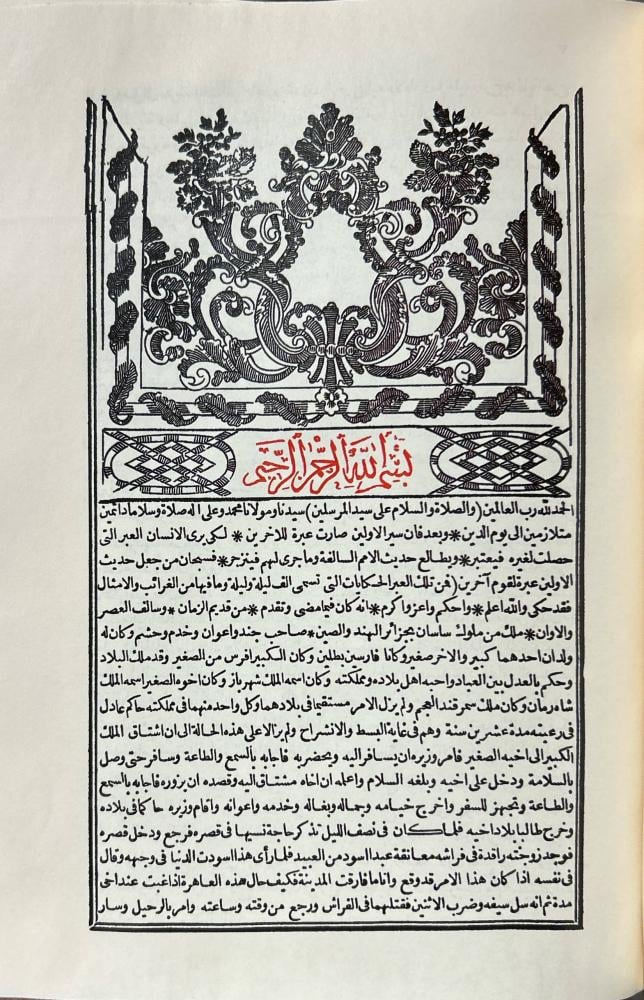 بسم الله الرحمن الرحيم
الحمد لله رب العالمين (والصلاة والسلام على سيد المرسلين) سيدنا ومولانا محمد وعلى اله صلاة وسلاما دائمين
متلازمين الى يوم الدين * وبعد فان سير الاولين صارت عبرة للاخرين * لكى يرى الانسان العبر التى
حصلت لغيره فيعتبر * ويطالع حديث الامم السالفة وما جرى لهم فينزجر * فسبحان من جعل حديث
الاولين عبرة لقوم آخرين (فمن تلك العبر الحكايات التى تسمى الف ليلة وليلة وما فيها من الغرائب والامثال
فقد حكى والله اعلم * واحكم واعز واكرم * انه كان فيما مضى وتقدم * من قديم الزمان * وسالف العصر
والاوان * ملك من ملوك ساسان بجزائر الهند والصين * صاحب جند واعوان وخدم وحشم وكان له
ولدان احدهما كبير والاخر صغير وكانا فارسين بطلين وكان الكبير افرس من الصغير وقد ملك البلاد
وحكم بالعدل بين العباد واحبه اهل بلاده ومملكته وكان اسمه الملك شهرباز وكان اخوه الصغير اسمه الملك
شاه زمان وكان ملك سمرقند العجم ولم يزل الامر مستقيما فى بلادهما وكل واحد منهما فى مملكته حاكم عادل
فى رعيته مدة عشرين سنة وهم فى غاية البسط والانشراح ولم يزالا على هذه الحالة الى ان اشتاق الملك
الكبير الى اخيه الصغير فامر وزيره ان يسافر اليه ويحضر به فاجابه بالسمع والطاعة وسافر حتى وصل
بالسلامة ودخل على اخيه وبلغه السلام واعلمه ان اخاه مشتاق اليه وقصده ان يزوره فاجابه بالسمع
والطاعة وتجهز للسفر واخرج خيامه وجماله وبغاله وخدمه واعوانه واقام وزيره حاكما فى بلاده
وخرج طالبا بلاد اخيه فلما كان فى نصف الليل تذكر حاجة نسيها فى قصره فرجع ودخل قصره
فوجد زوجته راقدة فى فراشه معانقة عبدا اسود من العبيد فلما رأى هذا اسودت الدنيا فى وجهه وقال
فى نفسه اذا كان هذا الامر قد وقع وانا ما فارقت المدينة فكيف حال هذه العاهرة اذا غبت عند اخى
مدة ثم انه سل سيفه وضرب الاثنين فقتلهما فى الفراش ورجع من وقته وساعته وامر بالرحيل وسار